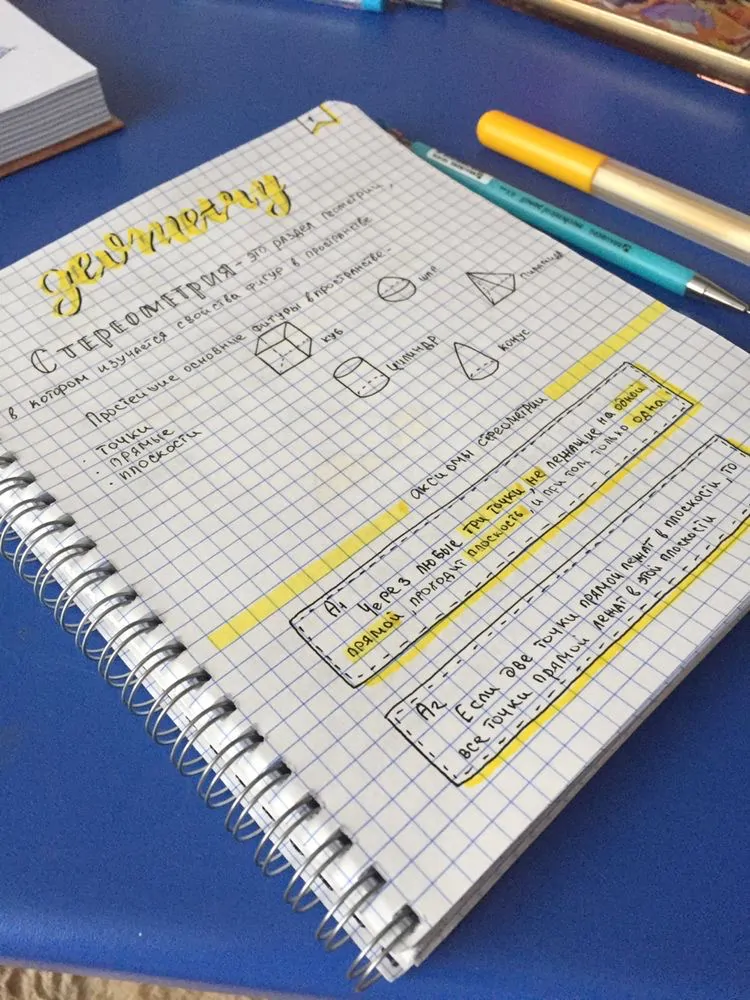 1
geometry
СТЕРЕОМЕТРИЯ - это раздел геометрии,
в котором изучается свойства фигур в пространстве
Простейшие основные фигуры в пространстве -
· точки
· прямые
· плоскости
куб
шар
пирамида
цилиндр
конус
аксиомы стреометрии
А1 Через любые три точки, не лежащие на одной
прямой, проходит плоскость, и при том только одна
А2 Если две точки прямой лежат в плоскости, то
все точки прямой лежат в этой плоскости